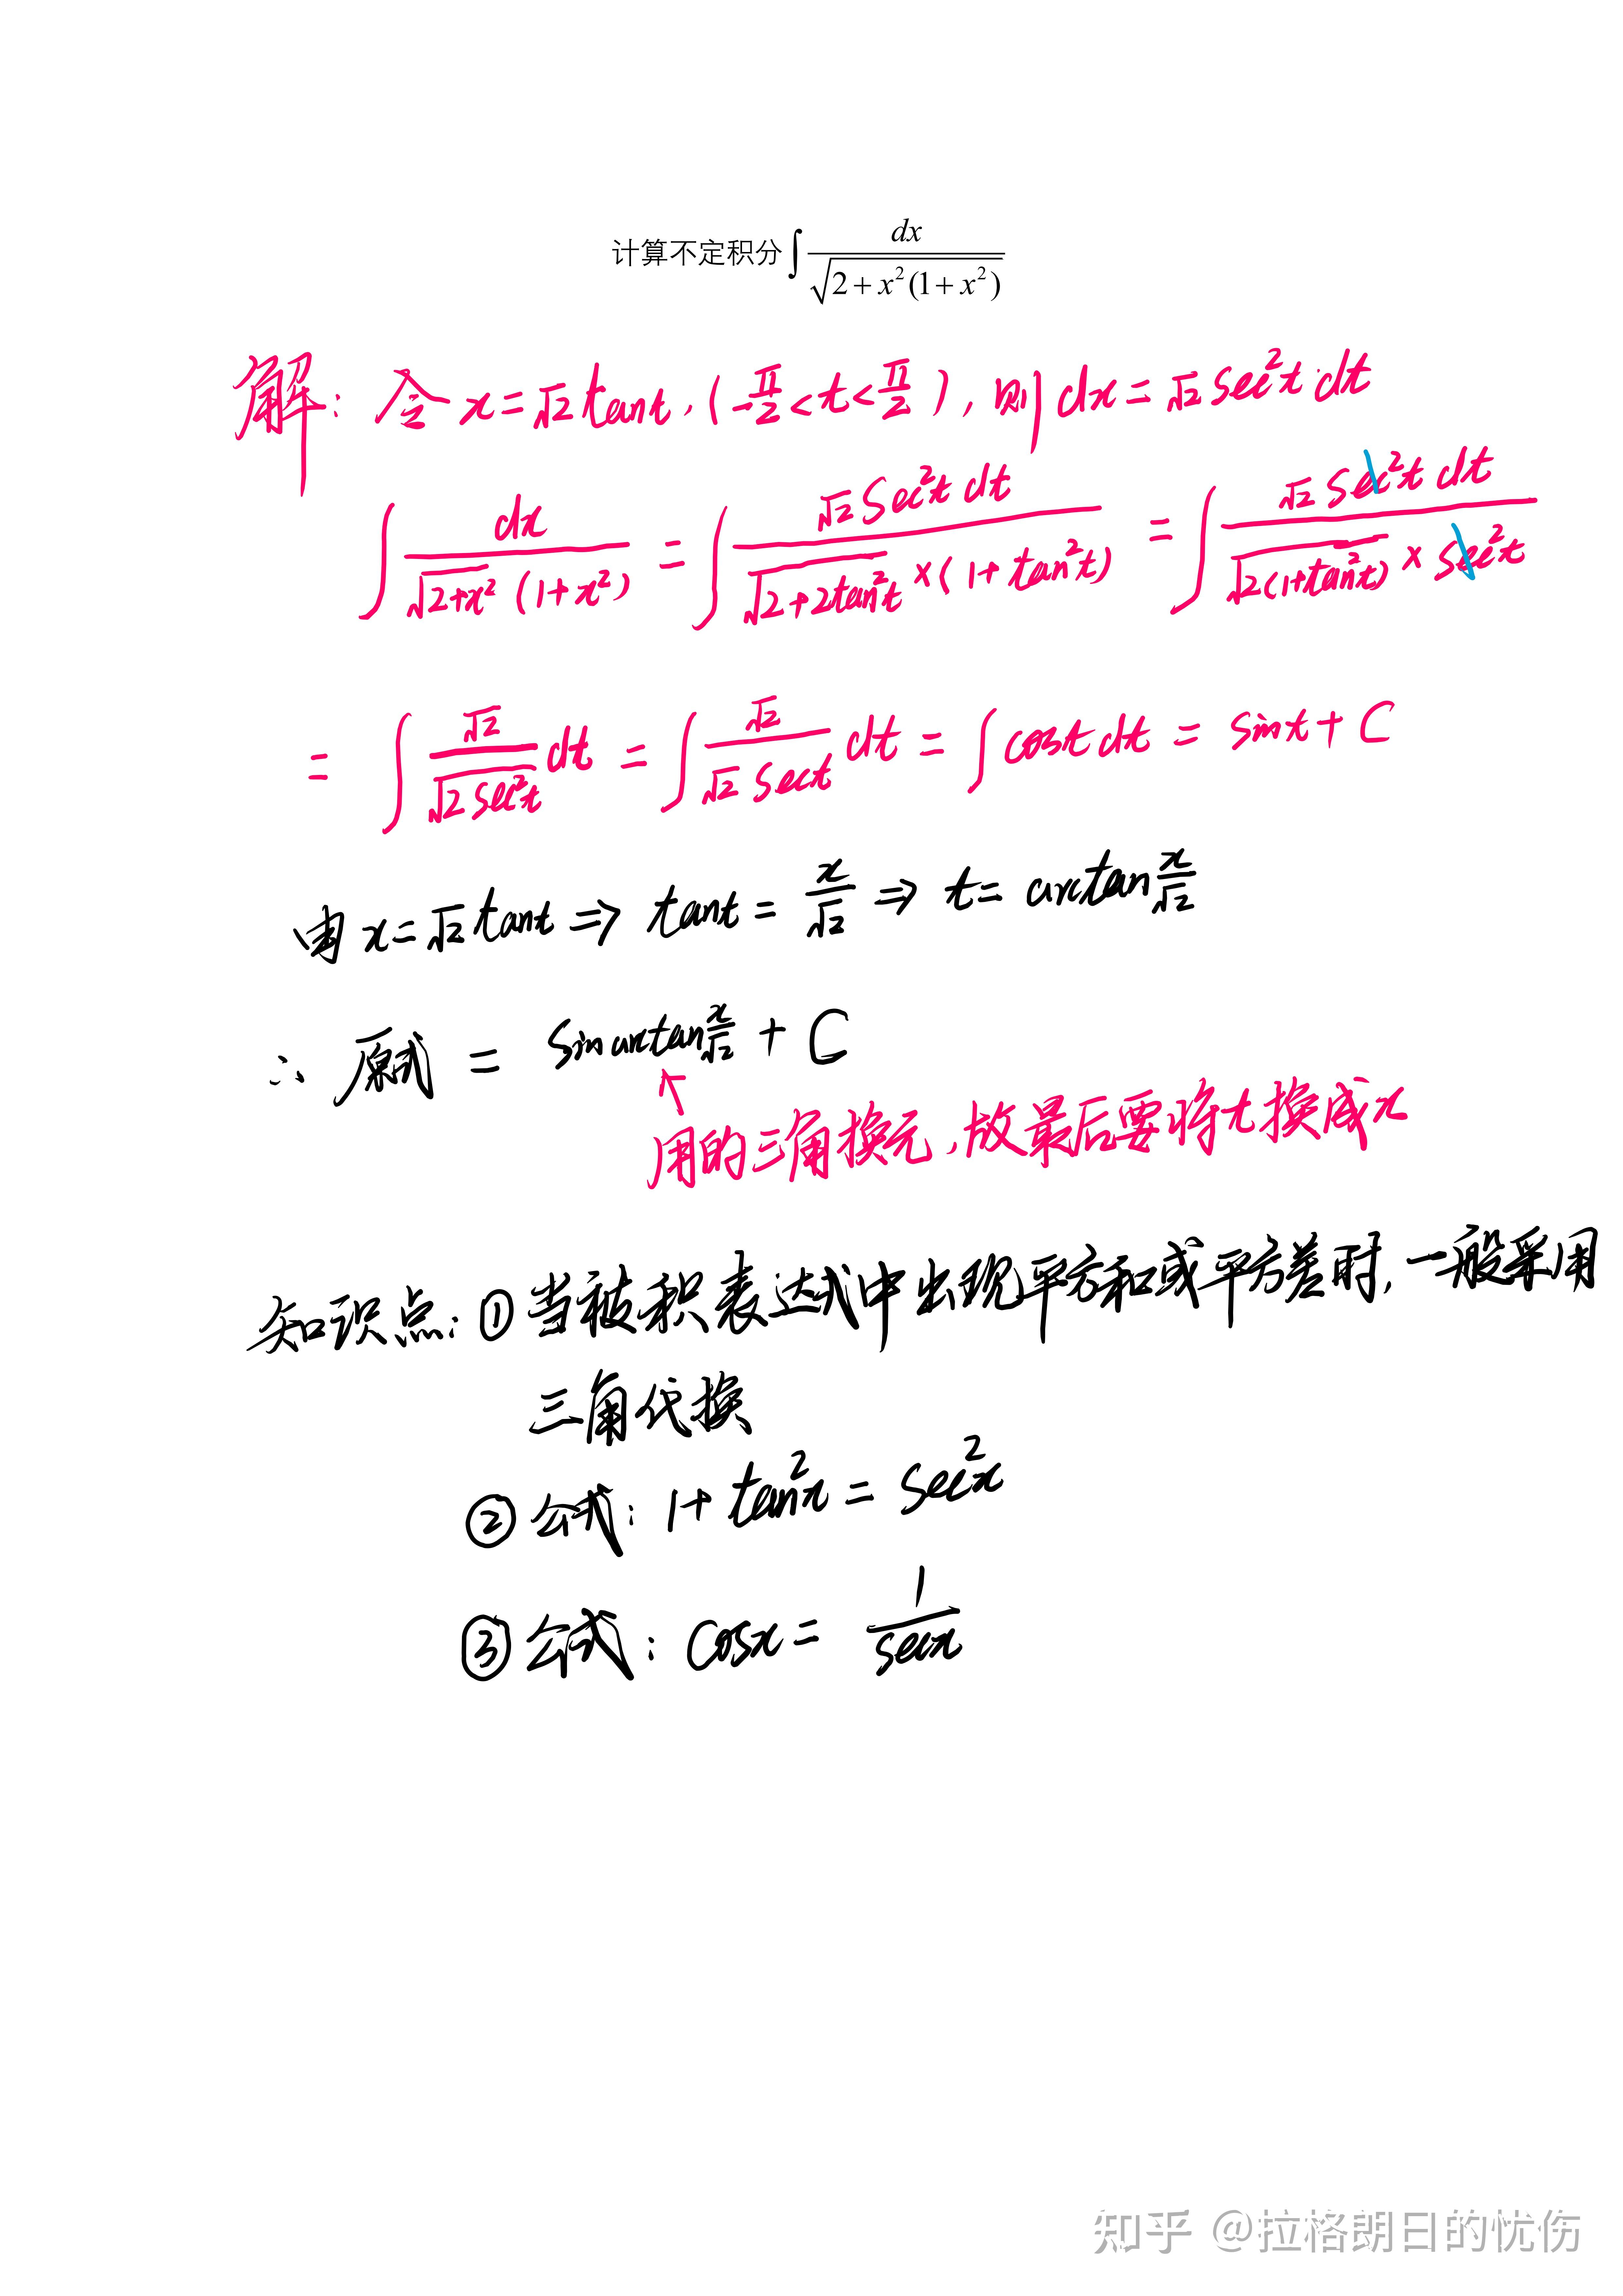 计算不定积分∫ dx / √(2+x²(1+x²))
解: 令 x=√2 tant, (-π/2<t<π/2), 则 dx=√2 sec²t dt
∫ dx / (√(2+x²) (1+x²)) = ∫ √2 sec²t dt / (√(2+2tan²t) ×(1+tan²t)) = ∫ √2 sec²t dt / (√(2(1+tan²t)) × sec²t)
= ∫ √2 / √(2sec²t) dt = ∫ √2 / (√2 sect) dt = ∫ cost dt = sint + C
由 x=√2 tant ⇒ tant = x/√2 ⇒ t= arctan x/√2
∴ 原式 = sin arctan x/√2 + C
用的三角换元,故最后要将t换成x
知识点: ① 当被积表达式中出现平方和或平方差时,一般采用
三角代换
② 公式: 1+tan²x = sec²x
③ 公式: cosx = 1/secx
知乎 @拉格朗日的忧伤